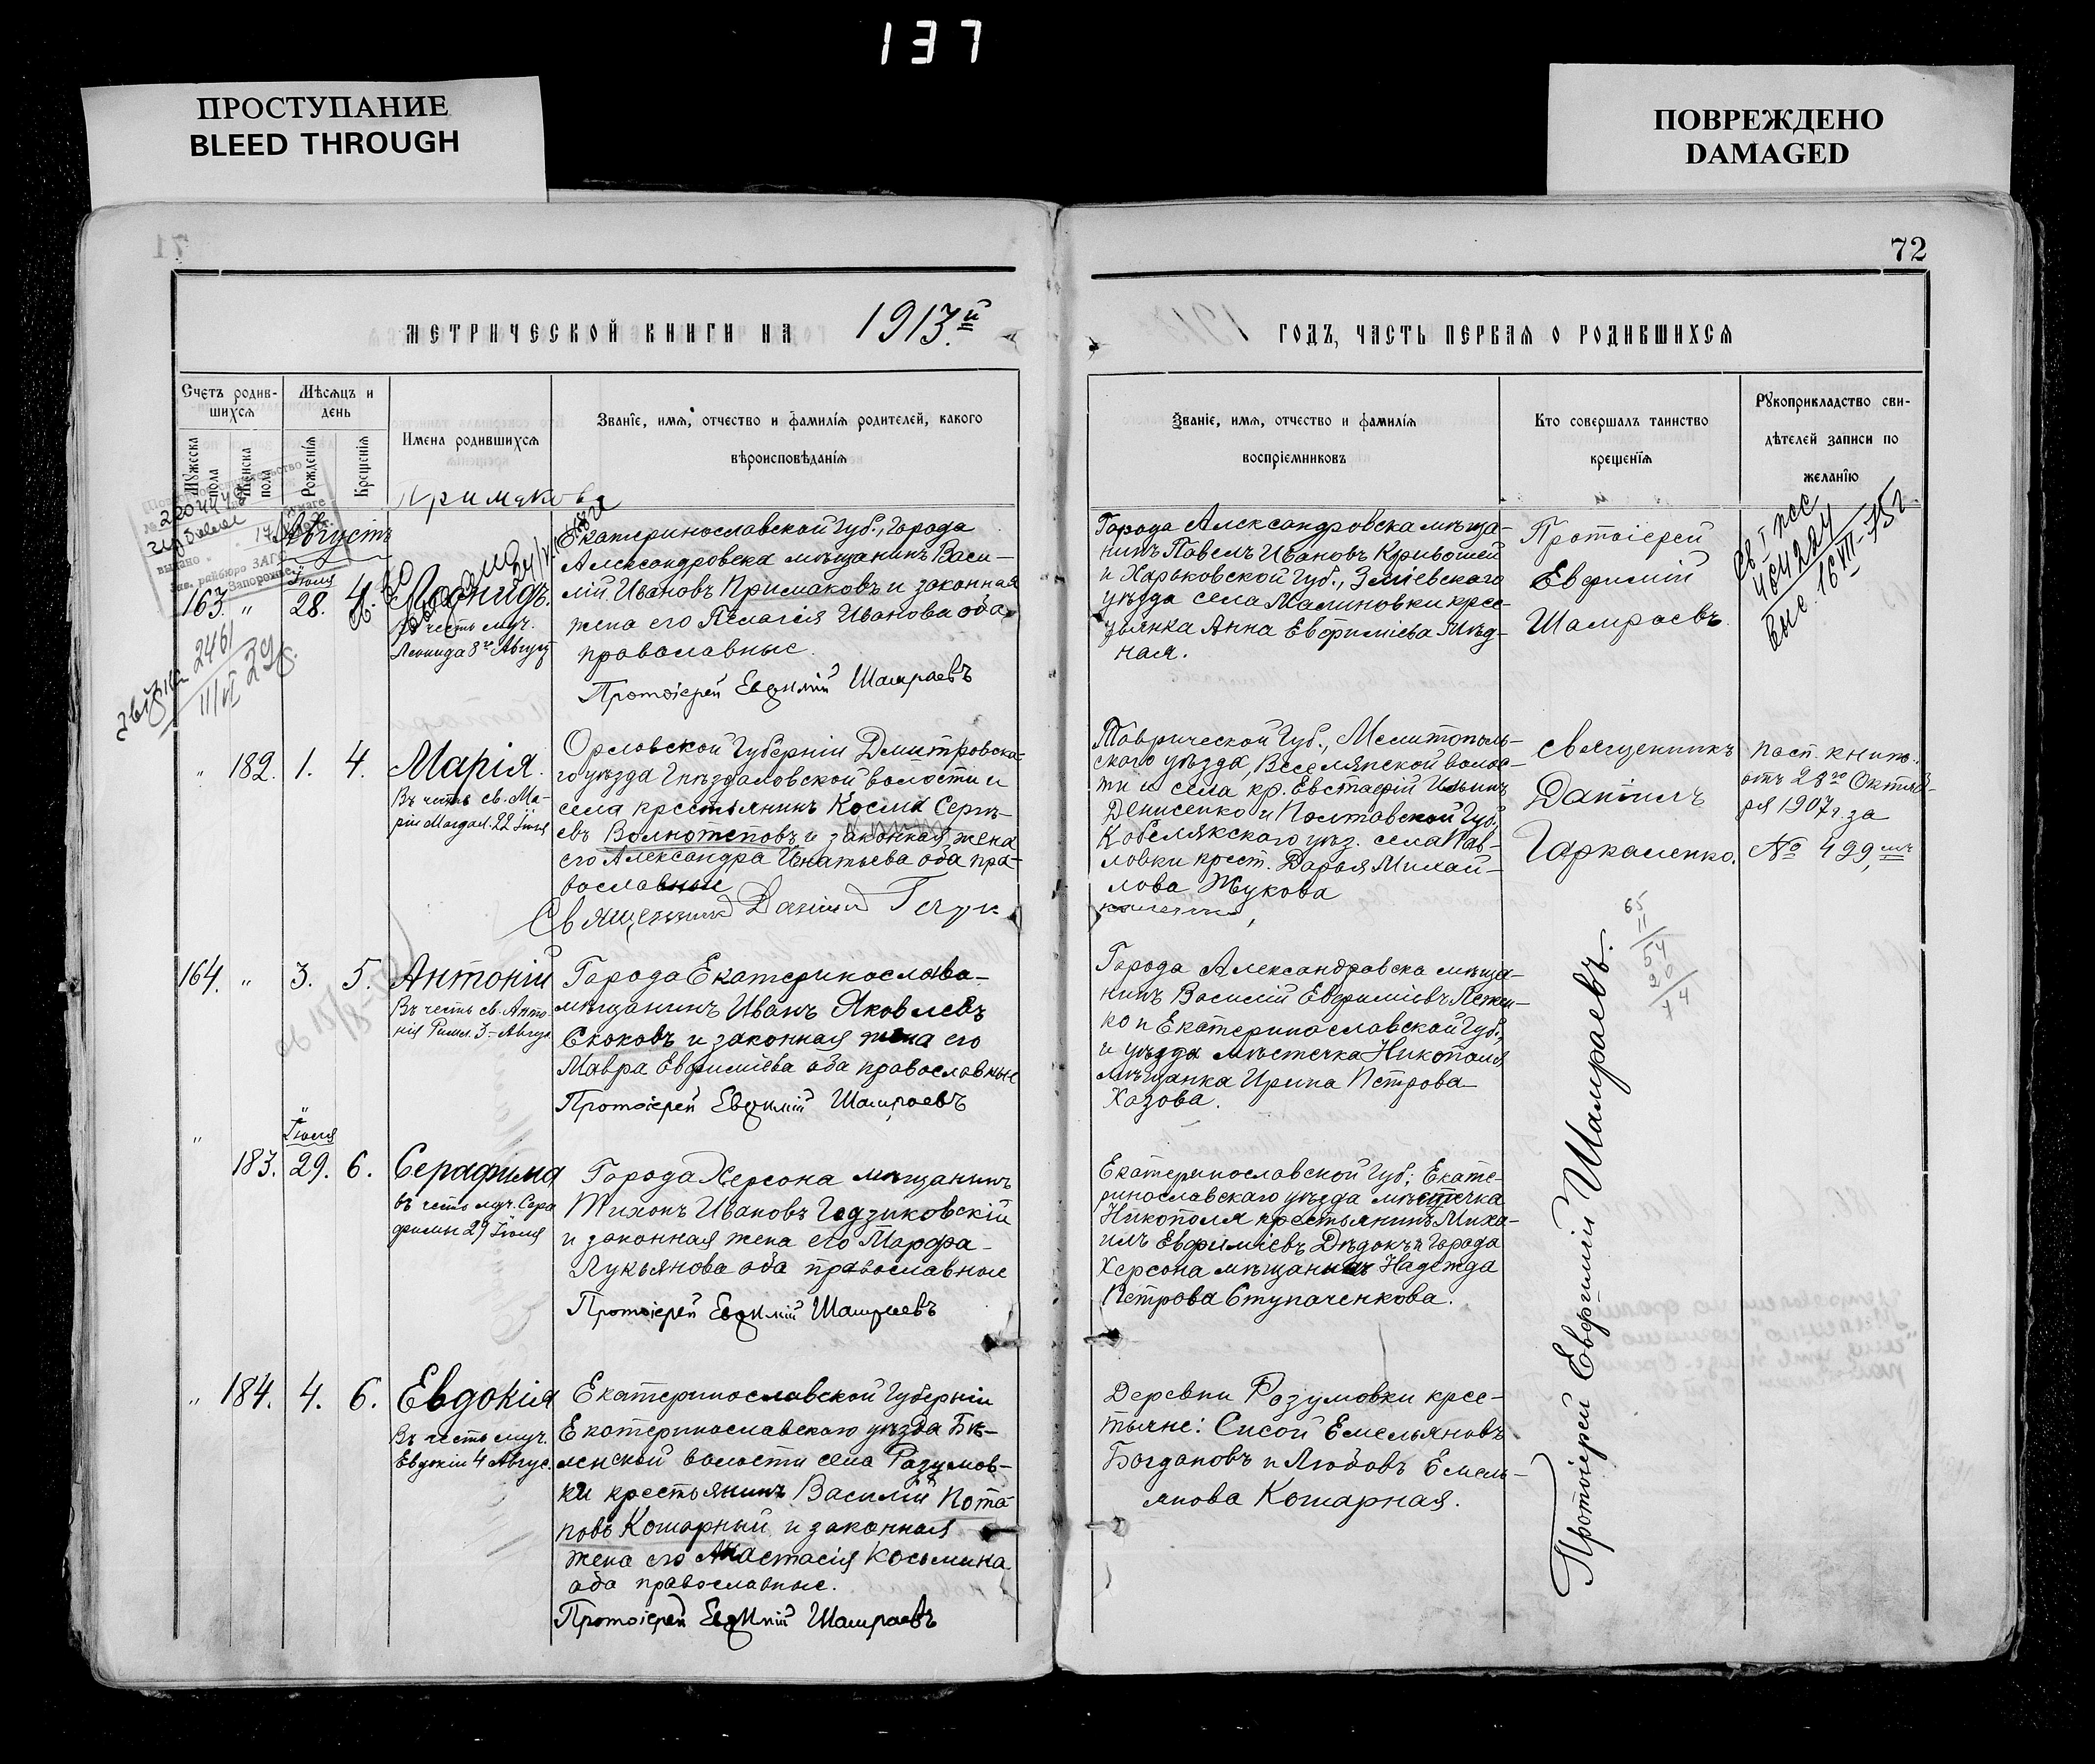 137
ПРОСТУПАНИЕ
BLEED THROUGH
ПОВРЕЖДЕНО
DAMAGED
71
72
МЕТРИЧЕСКОЙ КНИГИ НА 1913.й
ГОДЪ, ЧАСТЬ ПЕРВАЯ О РОДИВШИХСЯ
Счетъ родив-
шихся
Мужеска
пола
Женска
пола
Мѣсяцъ и
день
Рожденія
Крещенія
Имена родившихся
Званіе, имя, отчество и фамилія родителей, какого
вѣроисповѣданія
Званіе, имя, отчество и фамилія
воспріемниковъ
Кто совершалъ таинство
крещенія
Рукоприкладство сви-
дѣтелей записи по
желанію
Примакова
Августъ
Іюля
163. " 28. 4.
Леонидъ.
Въ честь муч.
Леонида 8го Август
Екатеринославской Губ., города
Александровска мѣщанинъ Васи-
лій Ивановъ Примаковъ и законная
жена его Пелагія Иванова оба
православные.
Протоіерей Евфимій Шамраевъ
Города Александровска мѣща-
нинъ Павелъ Ивановъ Кривошей
и Харьковской Губ., Зміевского
уѣзда села Малиновки крес-
тьянка Анна Евфиміева Мѣд-
ная.
Протоіерей
Евфимій
Шамраевъ
св. I
464284
выс. 16 VII-75г
2461
11/VI 29г.
" 182. 1. 4.
Марія.
Въ честь св. Ма-
ріи Магдал. 22 Іюля
Орловской Губерніи Дмитровска-
го уѣзда Гнѣздиловской волости и
села крестьянинъ Косма Сергѣ-
евъ Волнотеповъ и законная жена
его Александра Игнатьева оба пра-
вославные
Священникъ Даніилъ Гарк
Таврической Губ., Мелитополь-
ского уѣзда, Веселянской волос-
ти и села кр. Евстафій Ильинъ
Денисенко и Полтавской Губ.
Кобелякского уѣз. села Пав-
ловки крест. Дарья Михай-
лова Жукова
Священникъ
Даніилъ
Гаркаленко.
Пасп. книж.
отъ 28го Октяб-
ря 1907г. за
№ 499,мъ
164. " 3. 5.
Антоній
Въ честь св. Анто-
нія Римл. 3- Август
Города Екатеринослава-
мѣщанинъ Иванъ Яковлевъ
Скоковъ и законная жена его
Мавра Евфиміева оба православные
Протоіерей Евфимій Шамраевъ
Города Александровска мѣща-
нинъ Василій Евфиміевъ
ко и Екатеринославской Губ.,
и уѣзда мѣстечка Никополя
мѣщанка Ирина Петрова-
Хазова.
65
11
54
20
74
" Іюля
183. 29. 6.
Серафима
въ честь муч. Сера
фимы 29 Іюля
Города Херсона мѣщанинъ
Тихонъ Ивановъ Гедзиковскій
и законная жена его Марфа-
Лукьянова оба православные
Протоіерей Евфимій Шамраевъ
Екатеринославской Губ; Екате-
ринославскаго уѣзда мѣстечка
Никополя крестьянинъ Миха-
илъ Евфиміевъ Дѣдокъ и города
Херсона мѣщанка Надежда
Петрова Ступаченкова.
" 184. 4. 6.
Евдокія
Въ честь муч.
Евдокіи 4 Авгус.
Екатеринославской Губерніи
Екатеринославскаго уѣзда Бѣ-
ленской волости села Разумов-
ки крестьянинъ Василій Пота-
повъ Кошарный и законная
жена его Анастасія Косьмина
оба православные.
Протоіерей Евфимій Шамраевъ
Деревни Розумовки крес-
тьяне: Сисой Емельяновъ
Богдановъ и Любовь Емель-
янова Кошарная.
Протоіерей Евфимій Шамраевъ.